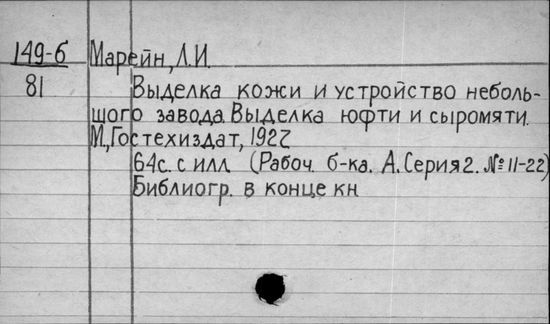 149-б Марейн, Л.И.
81 Выделка кожи и устройство неболь-
щого завода. Выделка юфти и сыромяти.
М., Гостехиздат, 1927
64с. с илл. (Рабоч. б-ка. А. Серия 2. № 11-22)
Библиогр. в конце кн